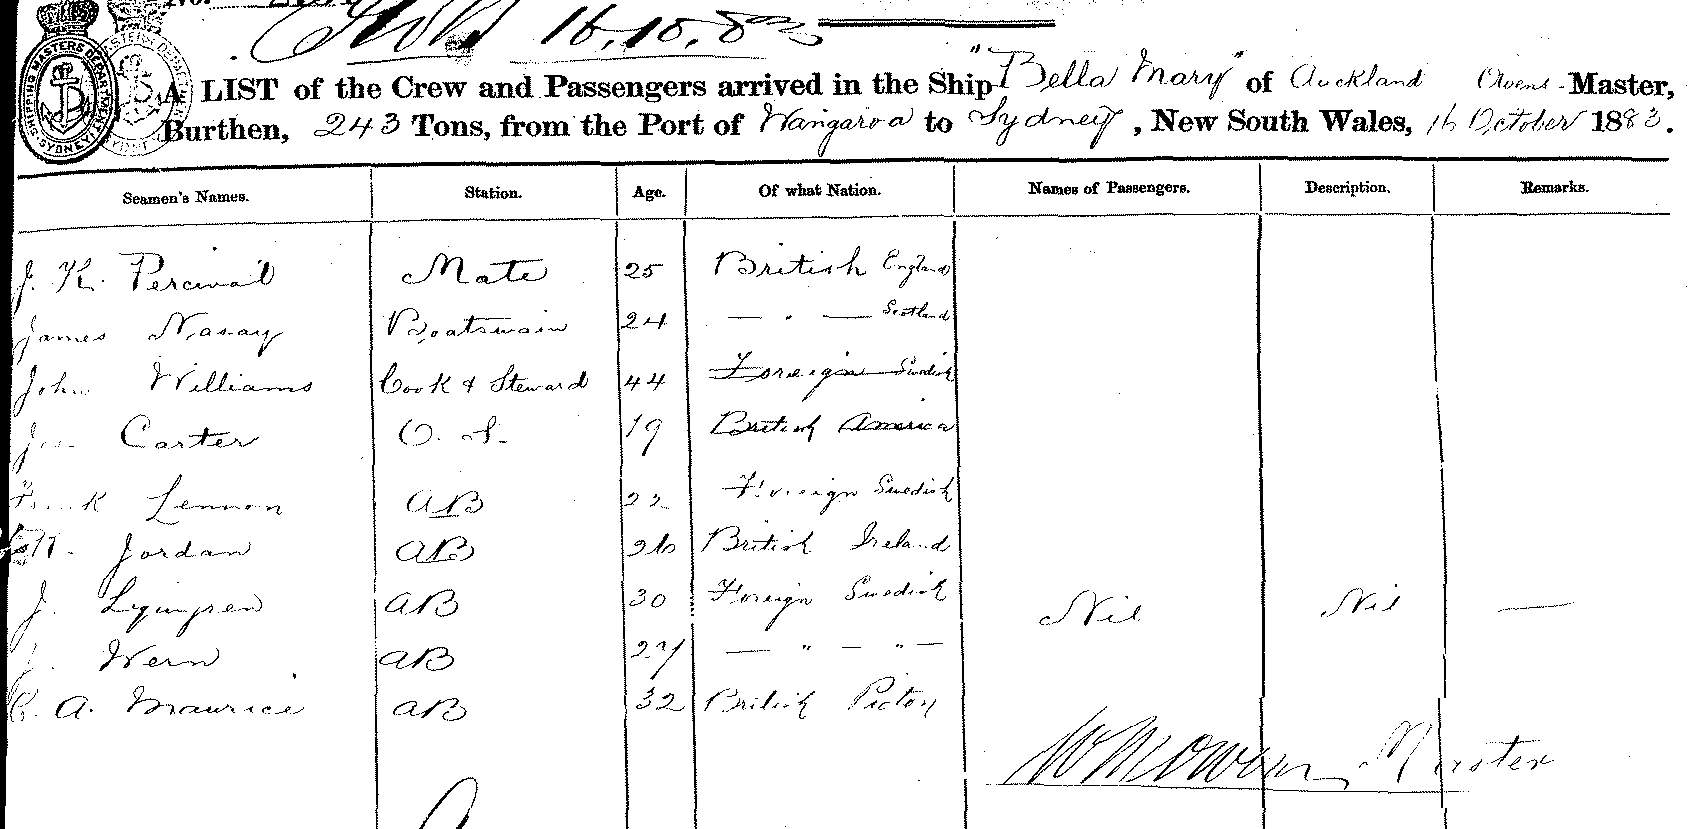 No.
16.10.83
A LIST of the Crew and Passengers arrived in the Ship "Bella Mary" of Auckland Owens Master,
Burthen, 243 Tons, from the Port of Wangaroa to Sydney, New South Wales, 16 October 1883.
Seamen's Names. Station. Age. Of what Nation. Names of Passengers. Description. Remarks.
J. K. Percival Mate 25 British England
James Nasay Boatswain 24 — " — Scotland
John Williams Cook & Steward 44 Foreign Swedish
Carter O. S. 19 British America
Frank Lennon AB 22 Foreign Swedish
Jordan AB 26 British Ireland
J. Lyungren AB 30 Foreign Swedish Nil Nil —
J. Wern AB 27 — " — " —
C. A. Maurice AB 32 British Picton
W M Owen Master
SHIPPING MASTERS DEPARTMENT SYDNEY